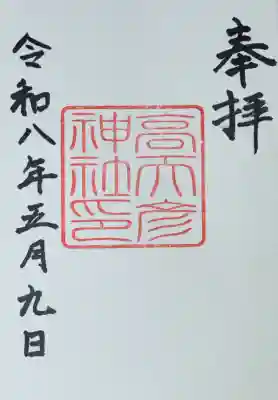 奉拝
高天彦
神社印
令和八年五月九日